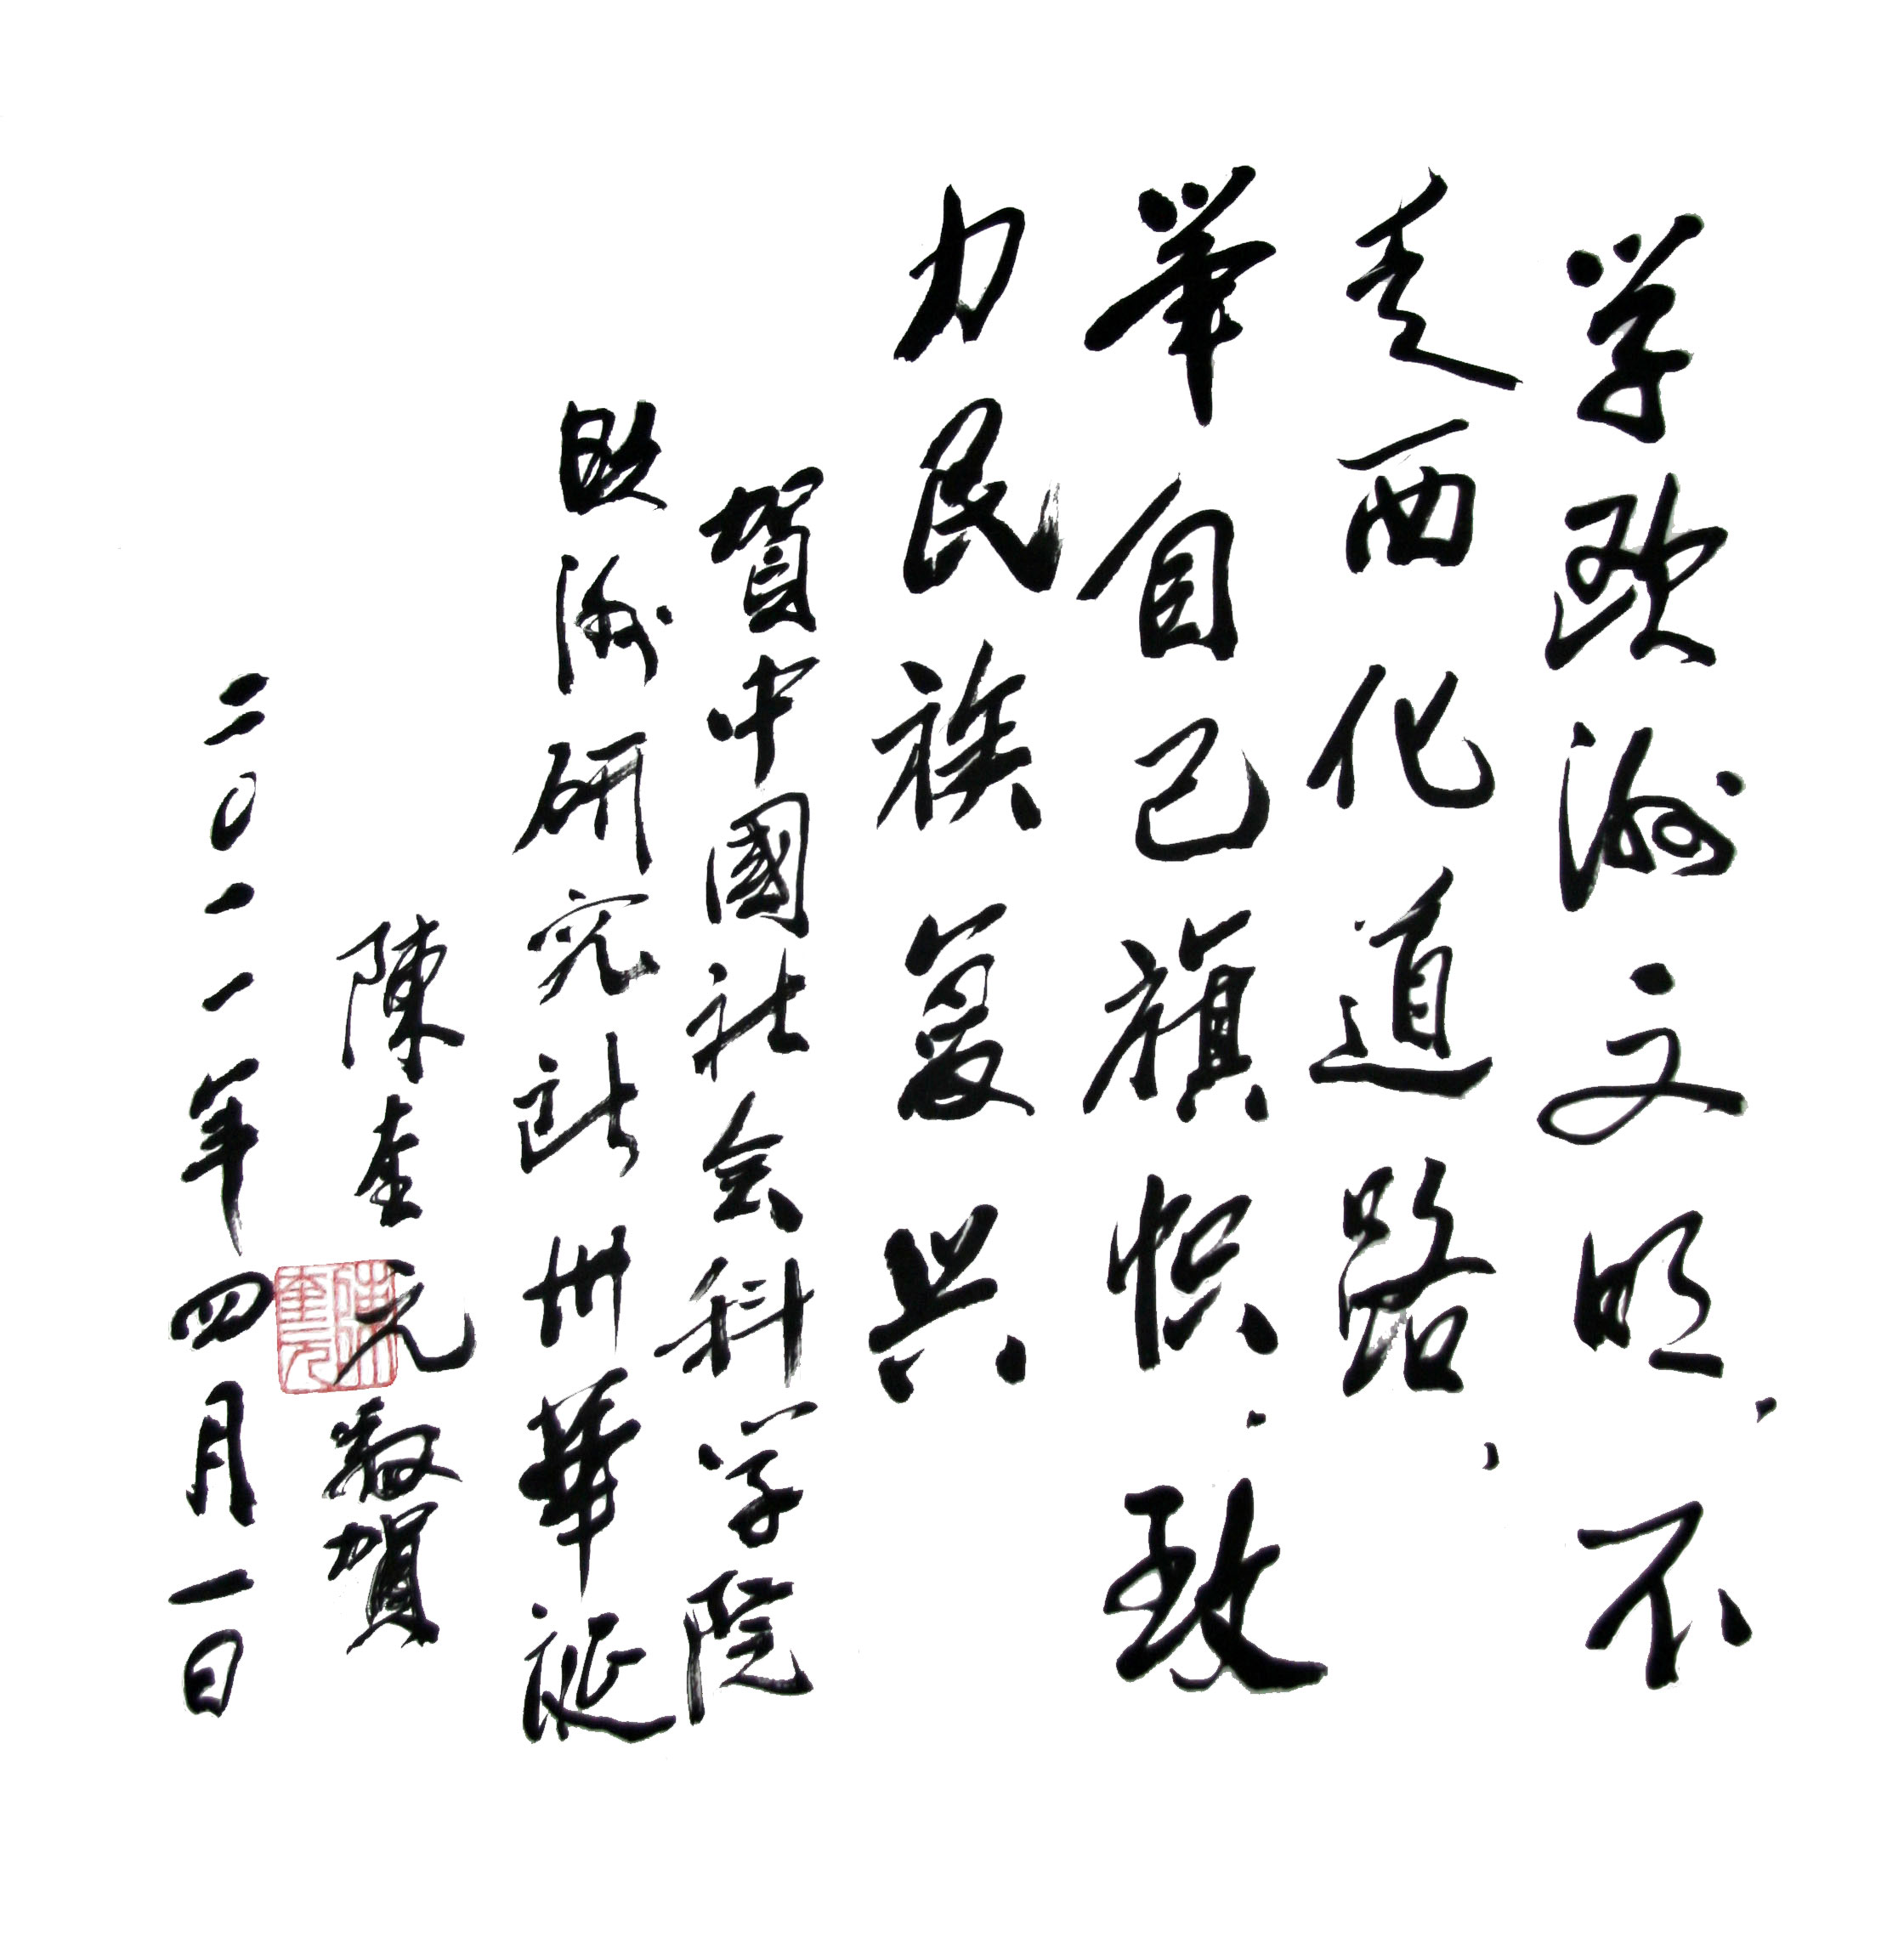 学欧洲文明、不
走西化道路、
举自己旗帜、致
力民族复兴
賀中國社会科学院
欧洲研究所卅華诞
陳奎元敬賀
二〇一一年四月一日